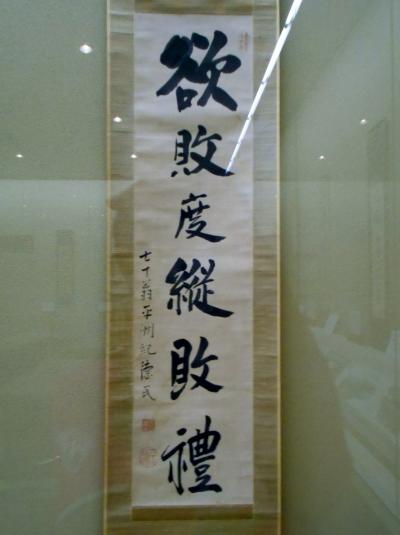 欲敗度縱敗禮
七十翁平洲紀德民